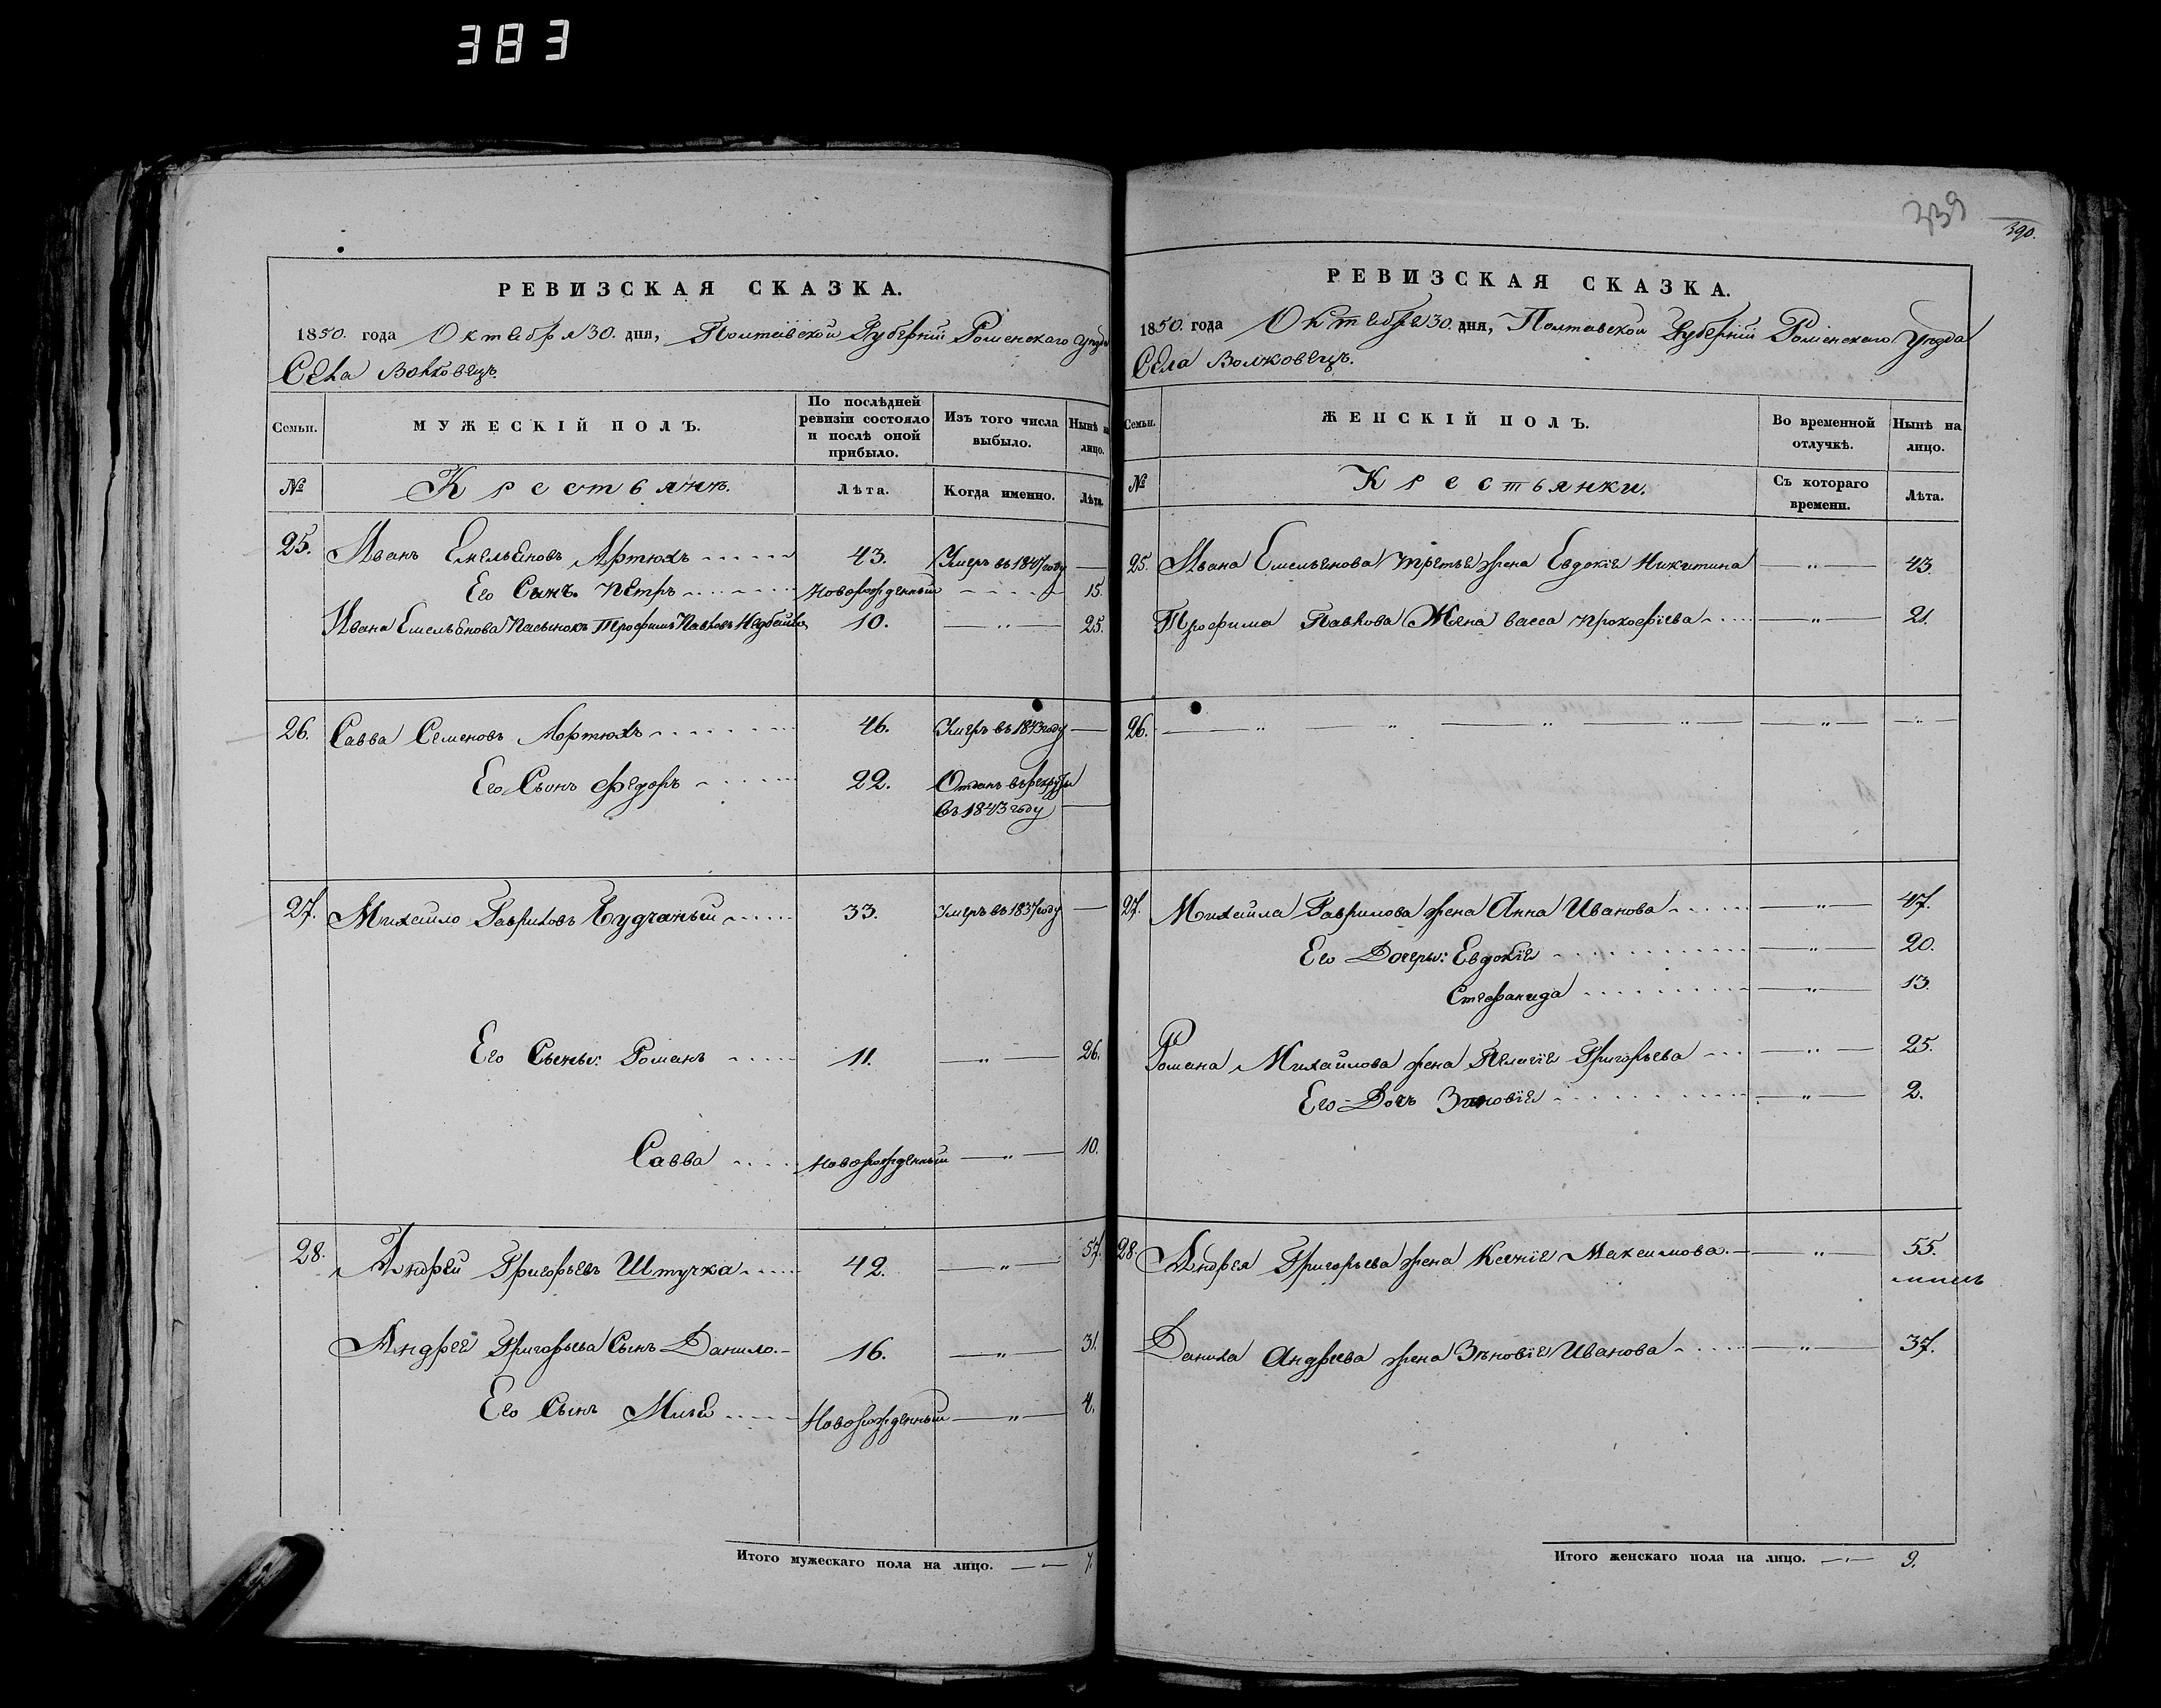 383
РЕВИЗСКАЯ СКАЗКА.
1850. года Октября 30. дня, Полтавской Губерніи Роменскаго Уезда
Села Волковецъ.
Семьи. МУЖЕСКІЙ ПОЛЪ. По послѣдней ревизіи состояло и послѣ оной прибыло. Изъ того числа выбыло. Нынѣ на лицо.
№ Крестьянъ. Лѣта. Когда именно. Лѣта.
25. Иванъ Емельяновъ Артюхъ 43. Умеръ въ 1847 году —
Его Сынъ Петръ Новорожденный 15.
Ивана Емельянова Пасынокъ Трофимъ Павловъ Недбайло 10. — " — 25.
26. Савва Семеновъ Артюхъ 46. Умеръ въ 1843 году —
Его Сынъ Федоръ 22. Отданъ въ рекруты
въ 1843 году —
27. Михайло Гавриловъ Будчаный 33. Умеръ въ 1837 году —
Его Сыны: Романъ 11. — " — 26.
Савва Новорожденный — " — 10.
28. Андрей Григорьевъ Штучка 42. — " — 57.
Андрея Григорьева Сынъ Данило 16. — " — 31.
Его Сынъ Илья Новорожденный — " — 4.
Итого мужескаго пола на лицо. — 7.
339
390.
РЕВИЗСКАЯ СКАЗКА.
1850. года Октября 30. дня, Полтавской Губерніи Роменскаго Уезда
Села Волковецъ.
Семьи. ЖЕНСКІЙ ПОЛЪ. Во временной отлучкѣ. Нынѣ на лицо.
№ Крестьянки. Съ котораго времени. Лѣта.
25. Ивана Емельянова третья жена Евдокія Никитина — " — 43.
Трофима Павлова Жена васса прокофіева — " — 21.
26. — " — " — " — " — " — " —
27. Михайла Гаврилова жена Анна Иванова — " — 47.
Его Дочеры: Евдокія — " — 20.
Стефанида — " — 13.
Романа Михайлова жена Пелагія Григорьева — " — 25.
Его Дочь Зиновія — " — 2.
28. Андрея Григорьева жена Ксенія Максимова — " — 55.
Данила Андреева жена Зѣновія Иванова — " — 37.
Итого женскаго пола на лицо. — 9.